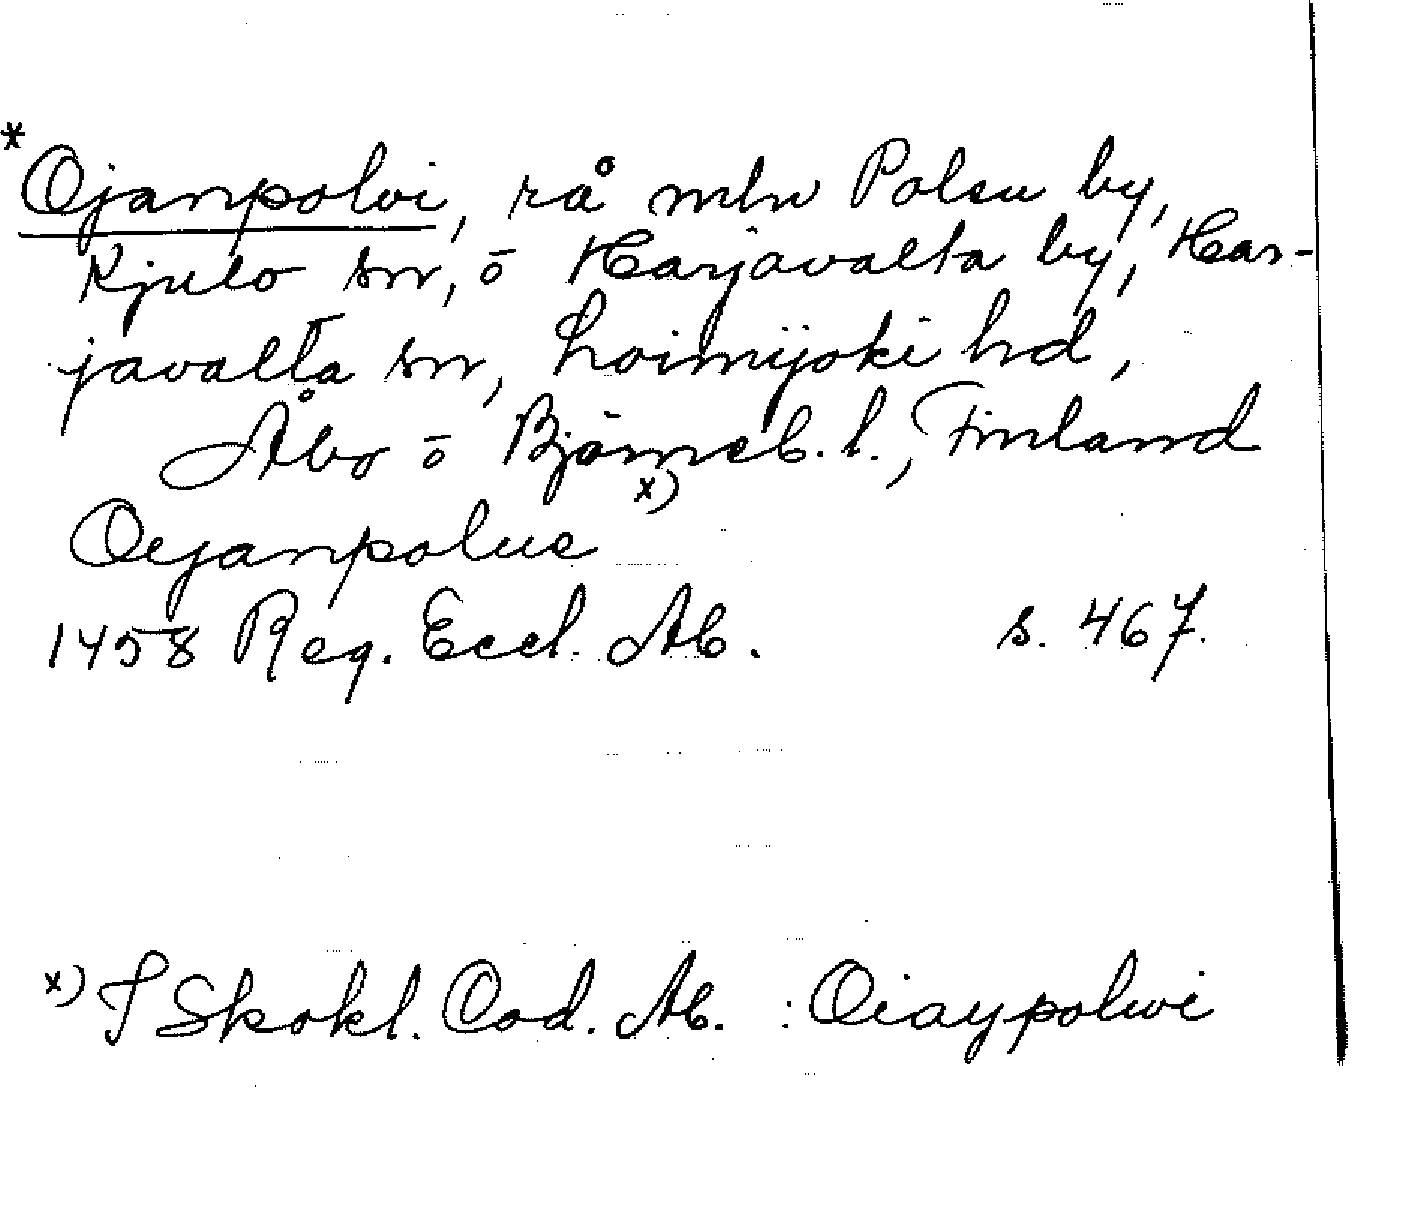 *Ojanpolvi, rå mln Polsu by,
Kjulo sn, ō Harjavalta by, Har-
javalta sn, Loimijoki hd,
Åbo ō Björneb. l., Finland
Oyanpolue x)
1458 Reg. Eccl. Ab. s. 467.
x) I Skokl. Cod. Ab. : Oiaypolwi